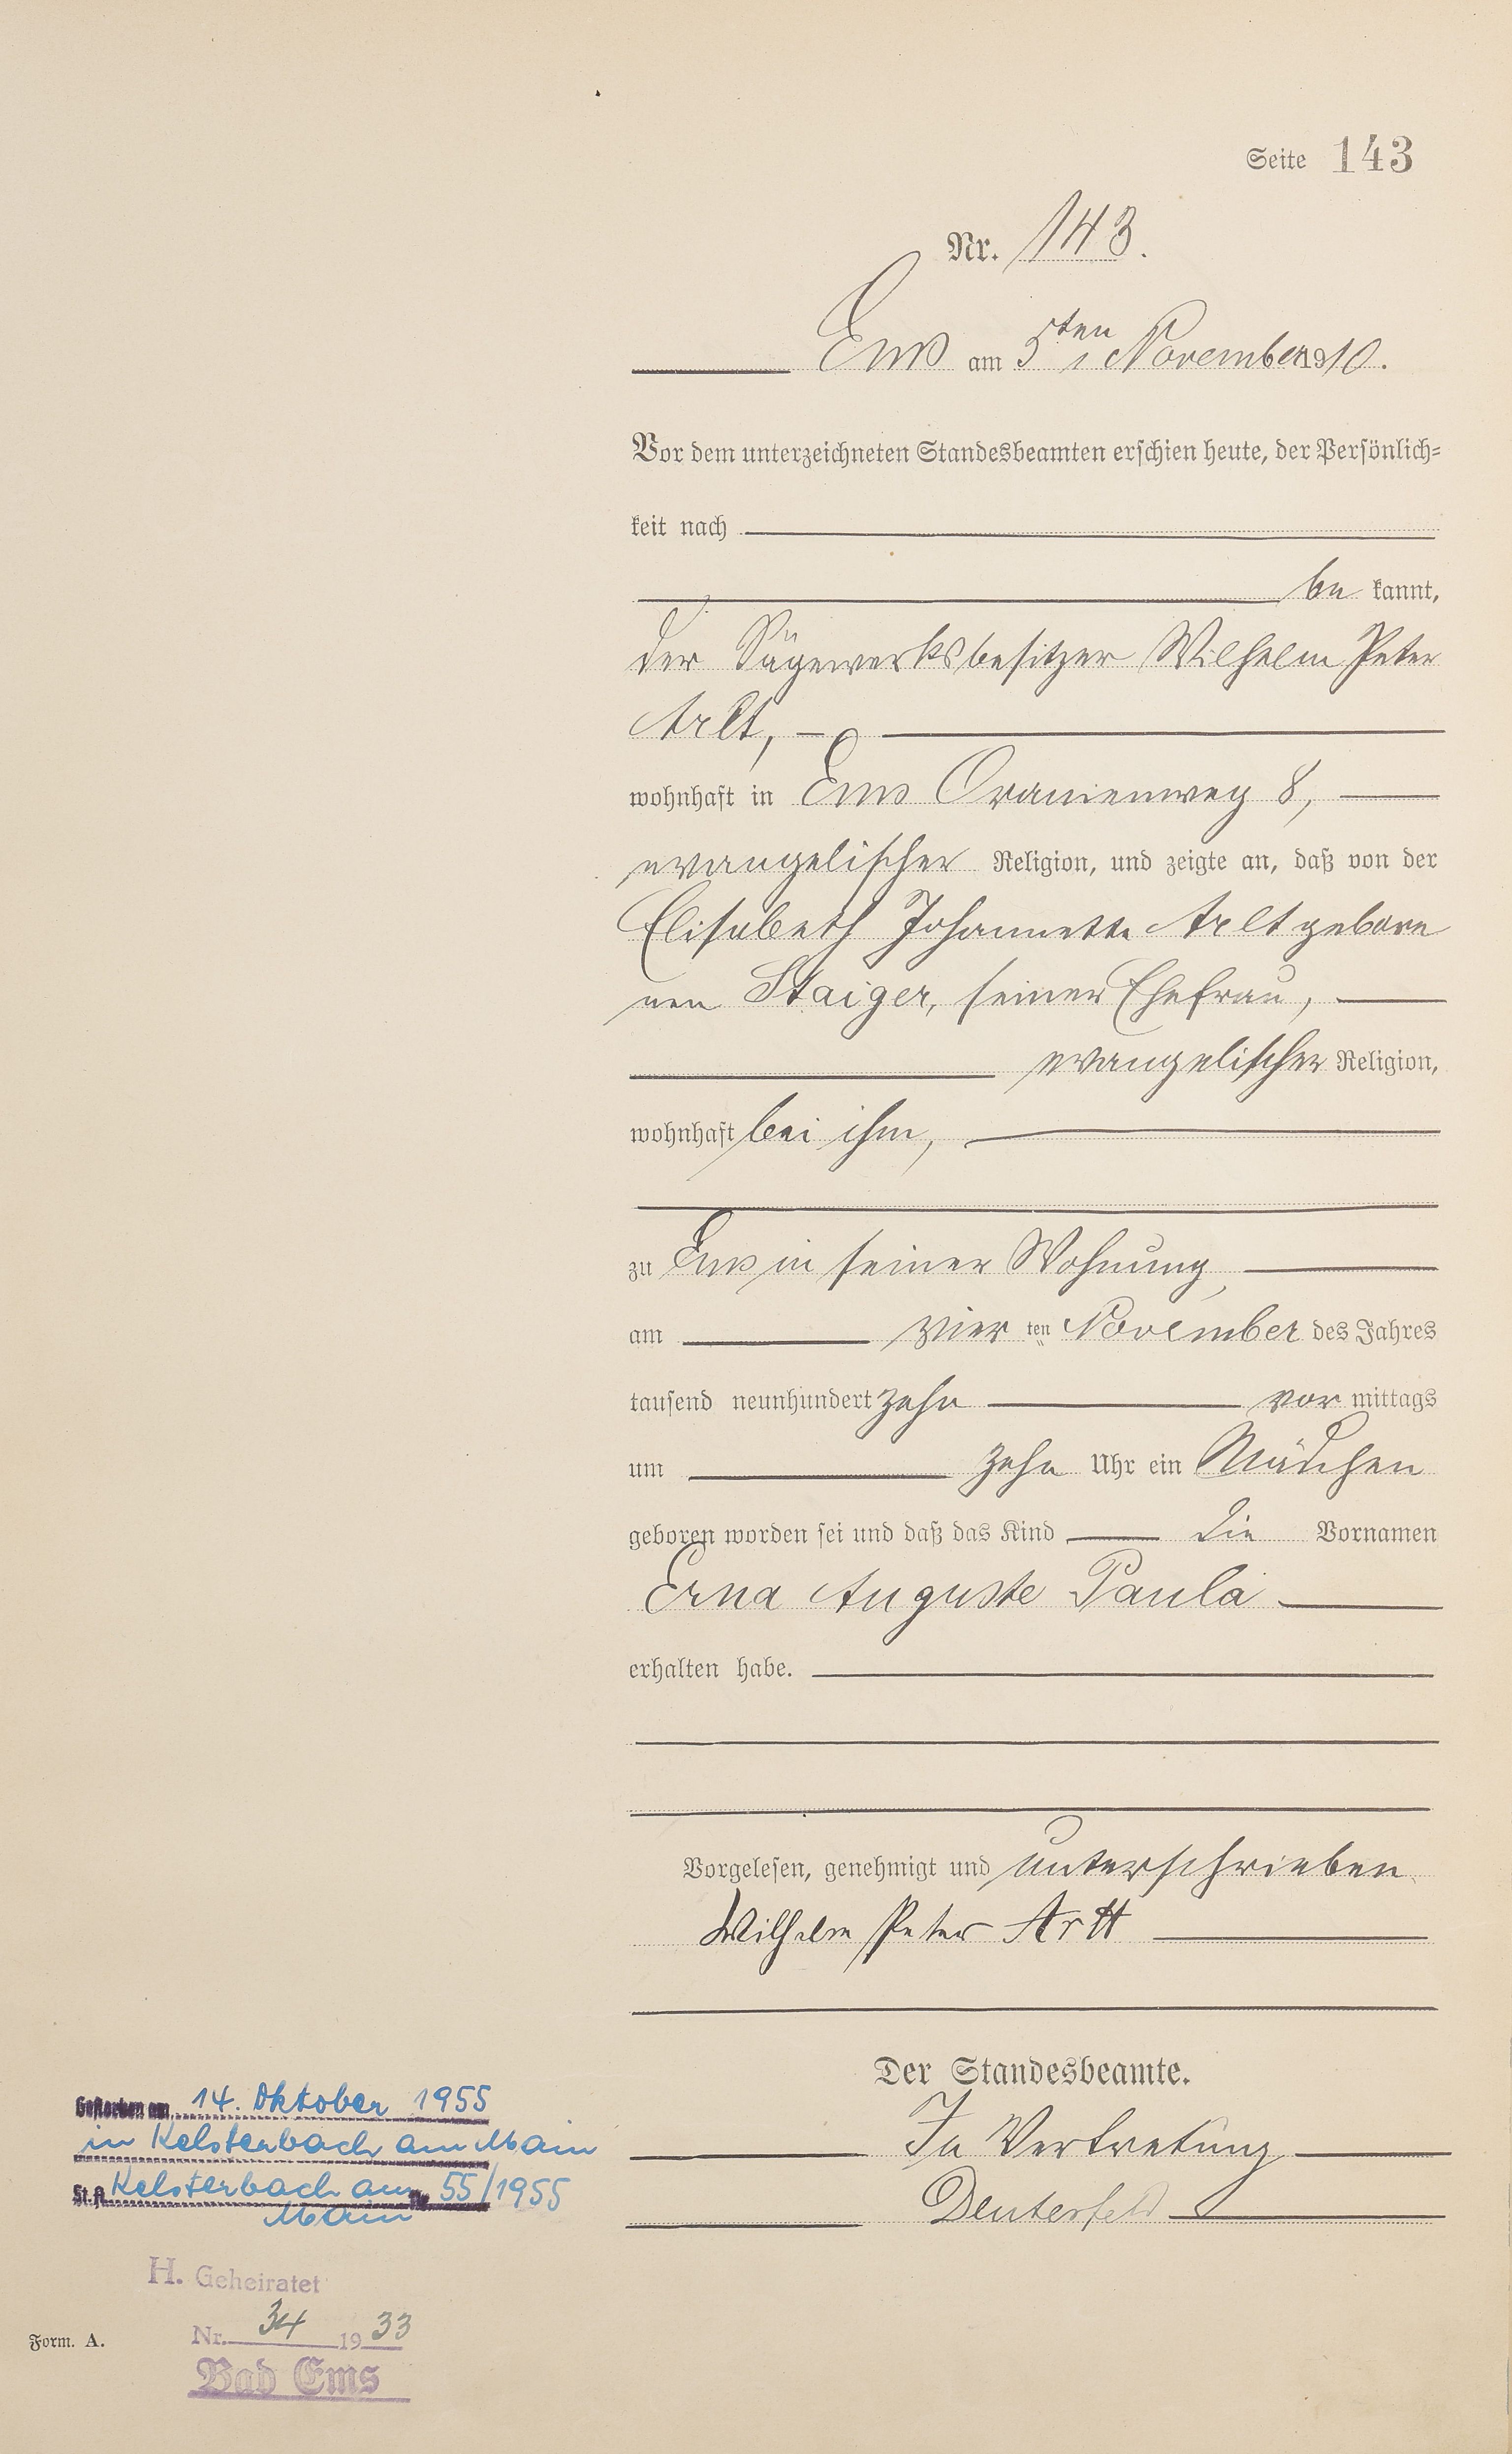 Seite 143
Nr. 143.
Ems am 5ten November 1910.
Vor dem unterzeichneten Standesbeamten erschien heute, der Persönlich-
keit nach
be kannt,
der Sägewerksbesitzer Wilhelm Peter
Arlt,
wohnhaft in Ems Oranienweg 8,
evangelischer Religion, und zeigte an, daß von der
Elisabeth Johannette Arlt gebore
nen Staiger, seiner Ehefrau,
evangelischer Religion,
wohnhaft bei ihm,
zu Ems in seiner Wohnung,
am vier ten November des Jahres
tausend neunhundert zehn vor mittags
um zehn Uhr ein Mädchen
geboren worden sei und daß das Kind die Vornamen
Erna Auguste Paula
erhalten habe.
Vorgelesen, genehmigt und unterschrieben
Wilhelm Peter Arlt
Der Standesbeamte.
In Vertretung
Gestorben am 14. Oktober 1955
in Kelsterbach am Main
St.A. Kelsterbach am Nr. 55/1955
Main
H. Geheiratet
Nr. 34 1933
Bad Ems
Form. A.